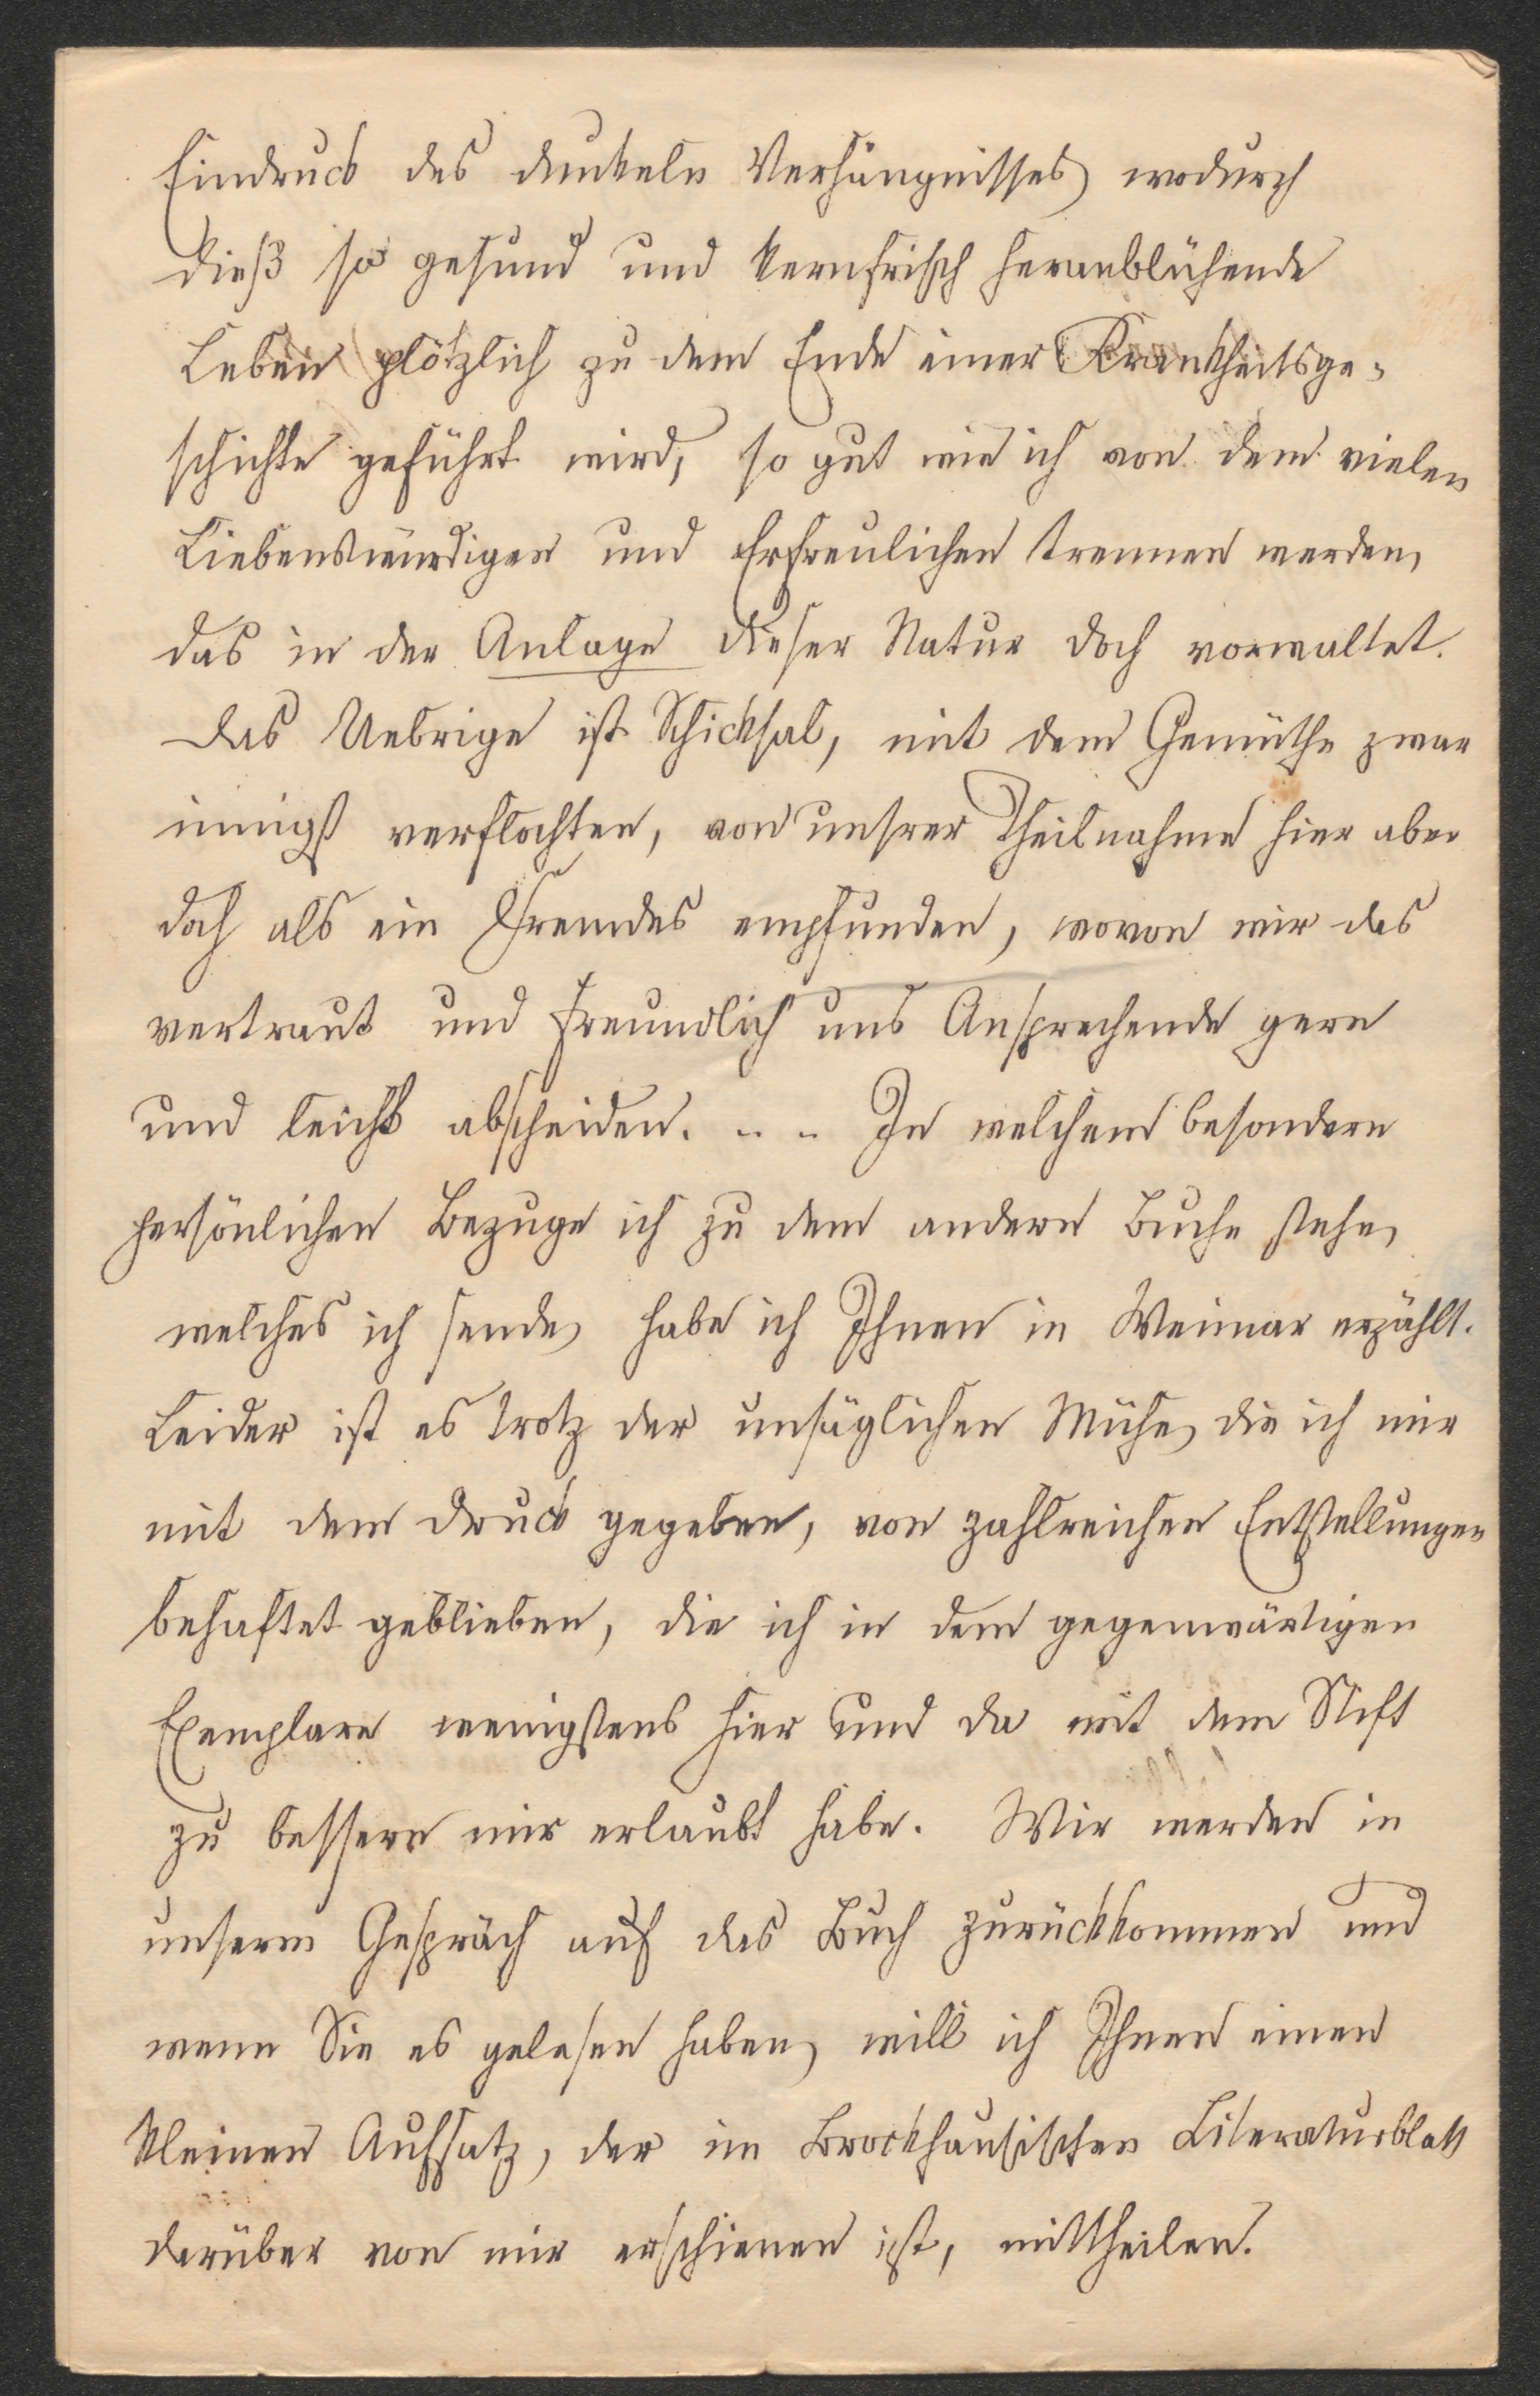 Eindruck des dunkeln Verhängnisses, wodurch
dieß so gesund und kernfrisch heranblühende
Leben plötzlich zu dem Ende einer Krankheitsge-
schichte geführt wird, so gut wie ich von dem vielen
Liebenswürdigen und Erfreulichen trennen werden,
das in der Anlage dieser Natur doch vorwaltet.
Das Uebrige ist Schicksal, mit dem Gemüthe zwar
innigst verflochten, von unsrer Theilnahme hier aber
doch als ein Fremdes empfunden, wovon wir das
vertraut und freundlich uns Ansprechende gern
und leicht abscheiden. - - In welchem besondern
persönlichen Bezuge ich zu dem andern Buche stehe,
welches ich sende, habe ich Ihnen in Weimar erzählt.
Leider ist es trotz der unsäglichen Mühe, die ich mir
mit dem Druck gegeben, von zahlreichen Entstellungen
behaftet geblieben, die ich in dem gegenwärtigen
Exemplare wenigstens hier und da mit dem Stift
zu bessern mir erlaubt habe. Wir werden in
unserm Gespräch auf das Buch zurückkommen und
wenn Sie es gelesen haben, will ich Ihnen einen
kleinen Aufsatz, der im Brockhausischen Literaturblatt
darüber von mir erschienen ist, mittheilen.